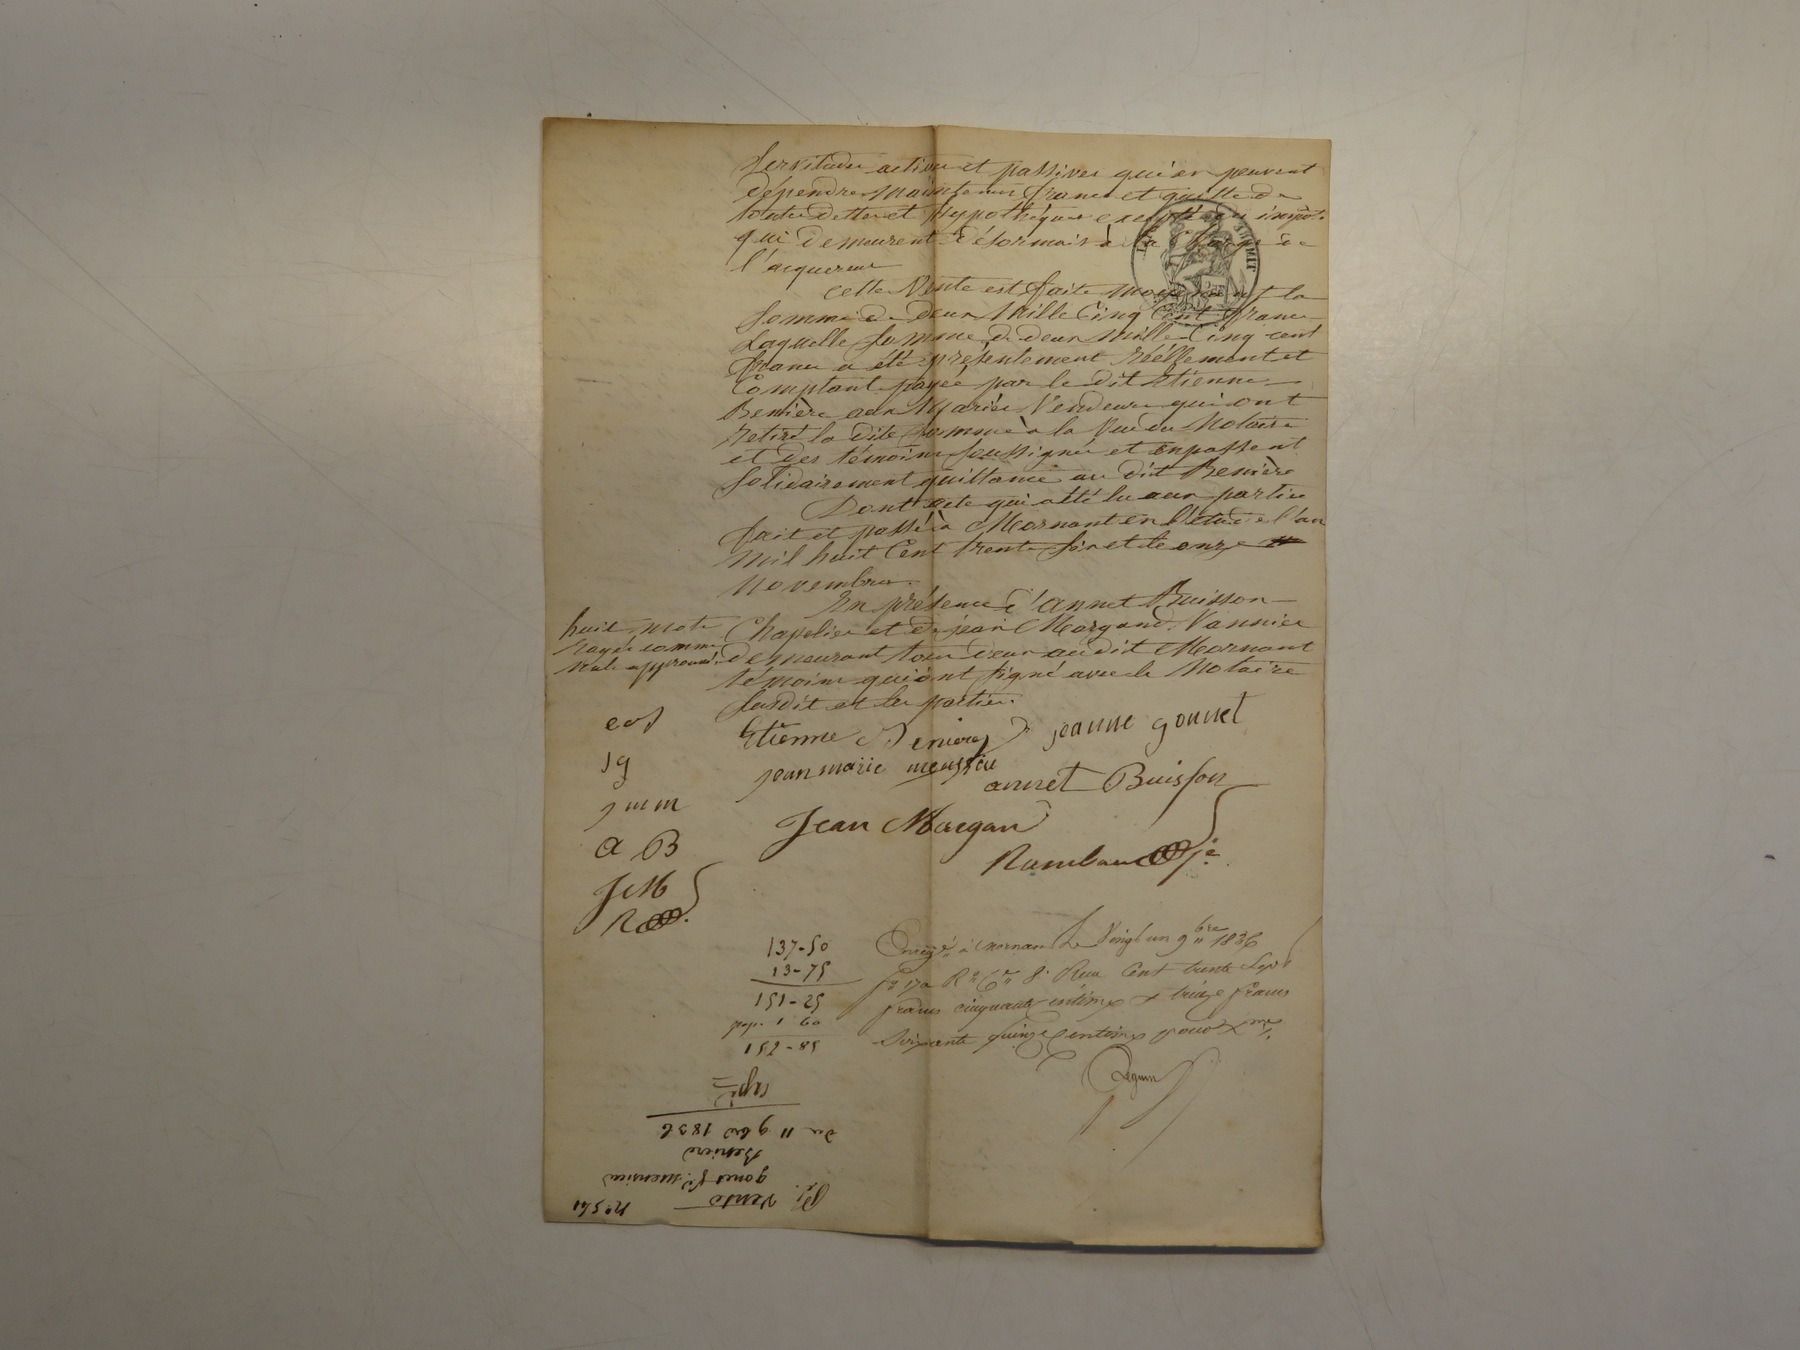 Servitudes actives et passives qui en peuvent
dépendre maintenus francs et quitte de
toutes dettes et hypothèques excepté les impôts
qui demeurent désormais à la charge de
l'acquereur
cette Vente est faite moyennant la
somme de deux Mille Cinq Cent francs
Laquelle somme de deux Mille Cinq cent
francs a été présentement réellement et
Comptant payée par le dit Etienne
Benière aux Mariés Vendeurs qui ont
retiré la dite somme à la Vue du Notaire
et des témoins soussignés et en passent
solidairement quittance au dit Benière
Dont acte qui a été lu aux parties
fait et passé à Mornant en l'étude l'an
mil huit Cent trente six et le onze
Novembre.
En présence d'annet Buisson
Chapelier et de jean Margand Vannier
demeurant tous deux au dit Mornant
témoins qui ont signé avec le Notaire
susdit et les parties.
huit mots
rayés comme
nuls approuvés
Etienne Beniere jeanne gonnet
jean marie
annet Buisson
Jean Margand
Rambaud
jg
jmm
a B
JM
R
137-50
13-75
151-25
pap. 1 60
152-85
Enregé à Mornant Le Vingt un 9bre 1836
fo 170 Ro Ce 8 Reçu Cent trente Sept
francs cinquante centimes & treize francs
Soixante quinze Centimes pour Xme
No 541
Vente
gonet
Beniere
du 11 9bre 1836
expé
TIMBRE